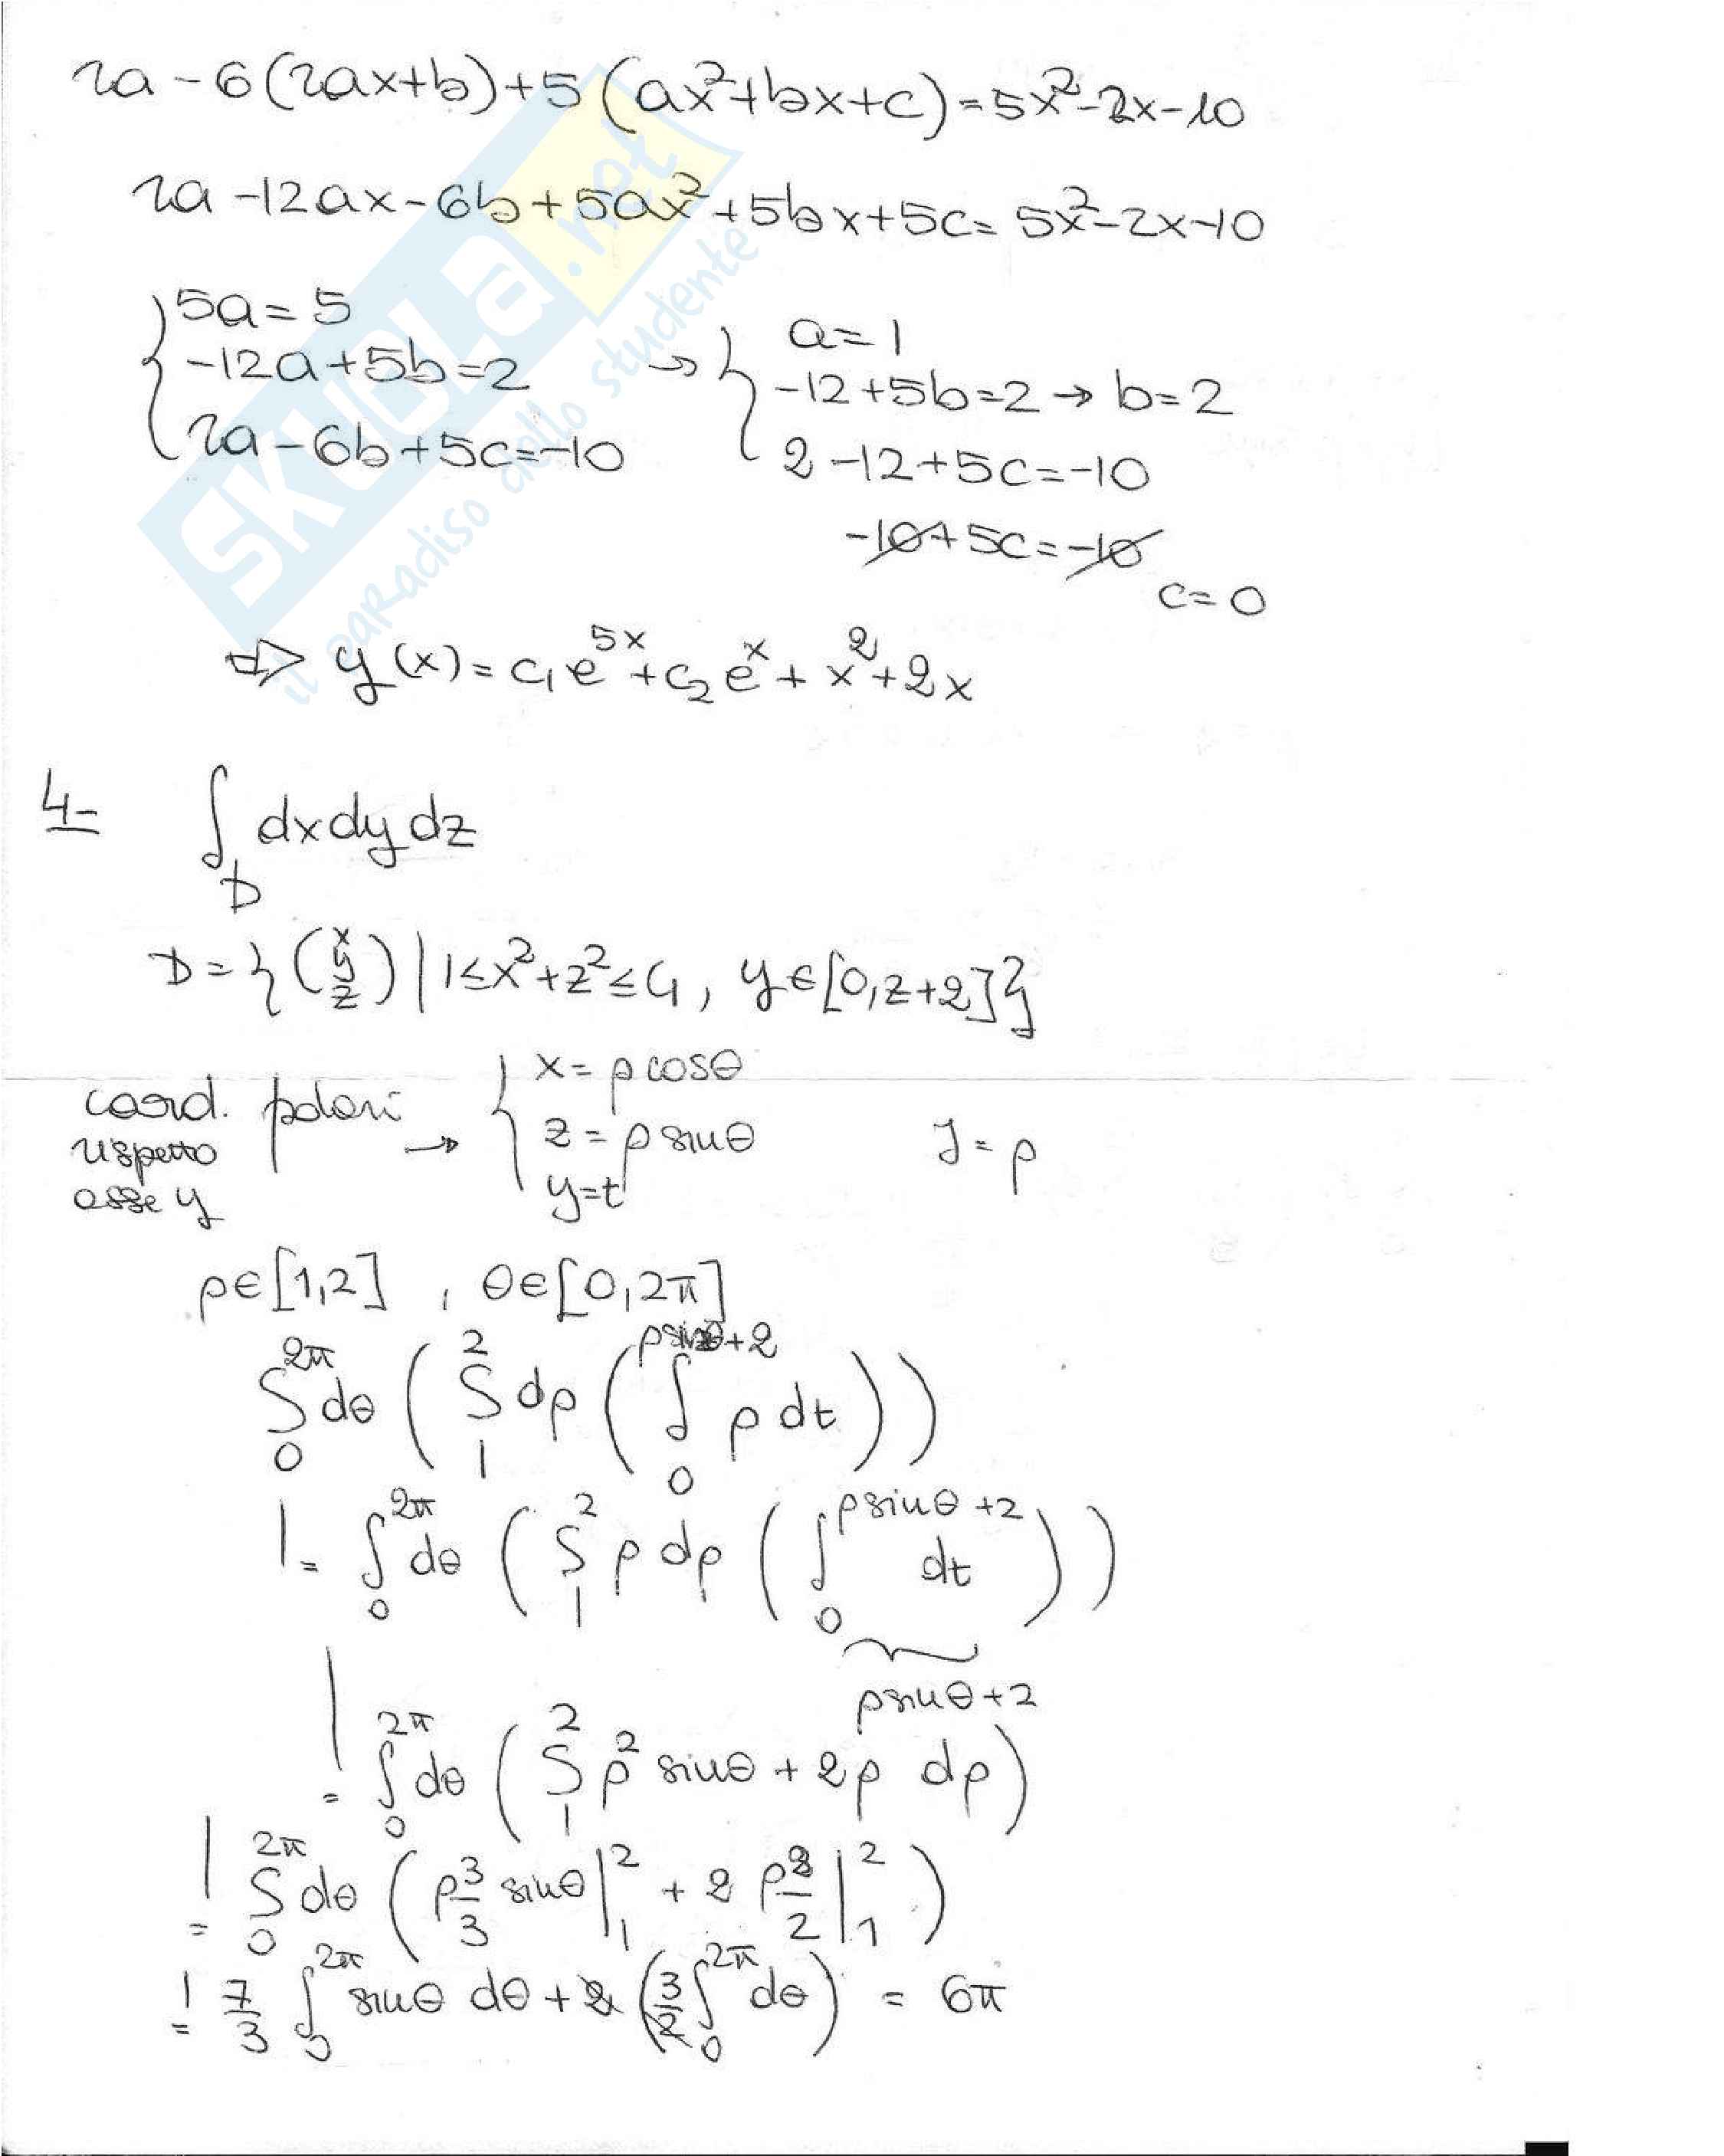 2a - 6(2ax+b)+5(ax²+bx+c)=5x²-2x-10
2a -12ax-6b+5ax²+5bx+5c= 5x²-2x-10
{ 5a=5
-12a+5b=2
2a-6b+5c=-10
→ { a=1
-12+5b=2 → b=2
2-12+5c=-10
-10+5c=-10
c=0
⇒ y(x)= c₁e^{5x}+c₂e^{x}+x²+2x
4- ∫_D dxdydz
D={(x y z) | 1≤x²+z²≤4, y∈[0,z+2]}
coord. polari rispetto asse y → { x=ρcosθ
z=ρsinθ
y=t
J=ρ
ρ∈[1,2] , θ∈[0,2π]
∫_0^{2π} dθ ( ∫_1^2 dρ ( ∫_0^{ρsinθ+2} ρ dt ))
= ∫_0^{2π} dθ ( ∫_1^2 ρ dρ ( ∫_0^{ρsinθ+2} dt ))
ρsinθ+2
= ∫_0^{2π} dθ ( ∫_1^2 ρ² sinθ + 2ρ dρ )
= ∫_0^{2π} dθ ( ρ³/3 sinθ |_1^2 + 2 ρ²/2 |_1^2 )
= 7/3 ∫_0^{2π} sinθ dθ + 2 ( 3/2 ∫_0^{2π} dθ ) = 6π
SKUOLA.net
il paradiso dello studente